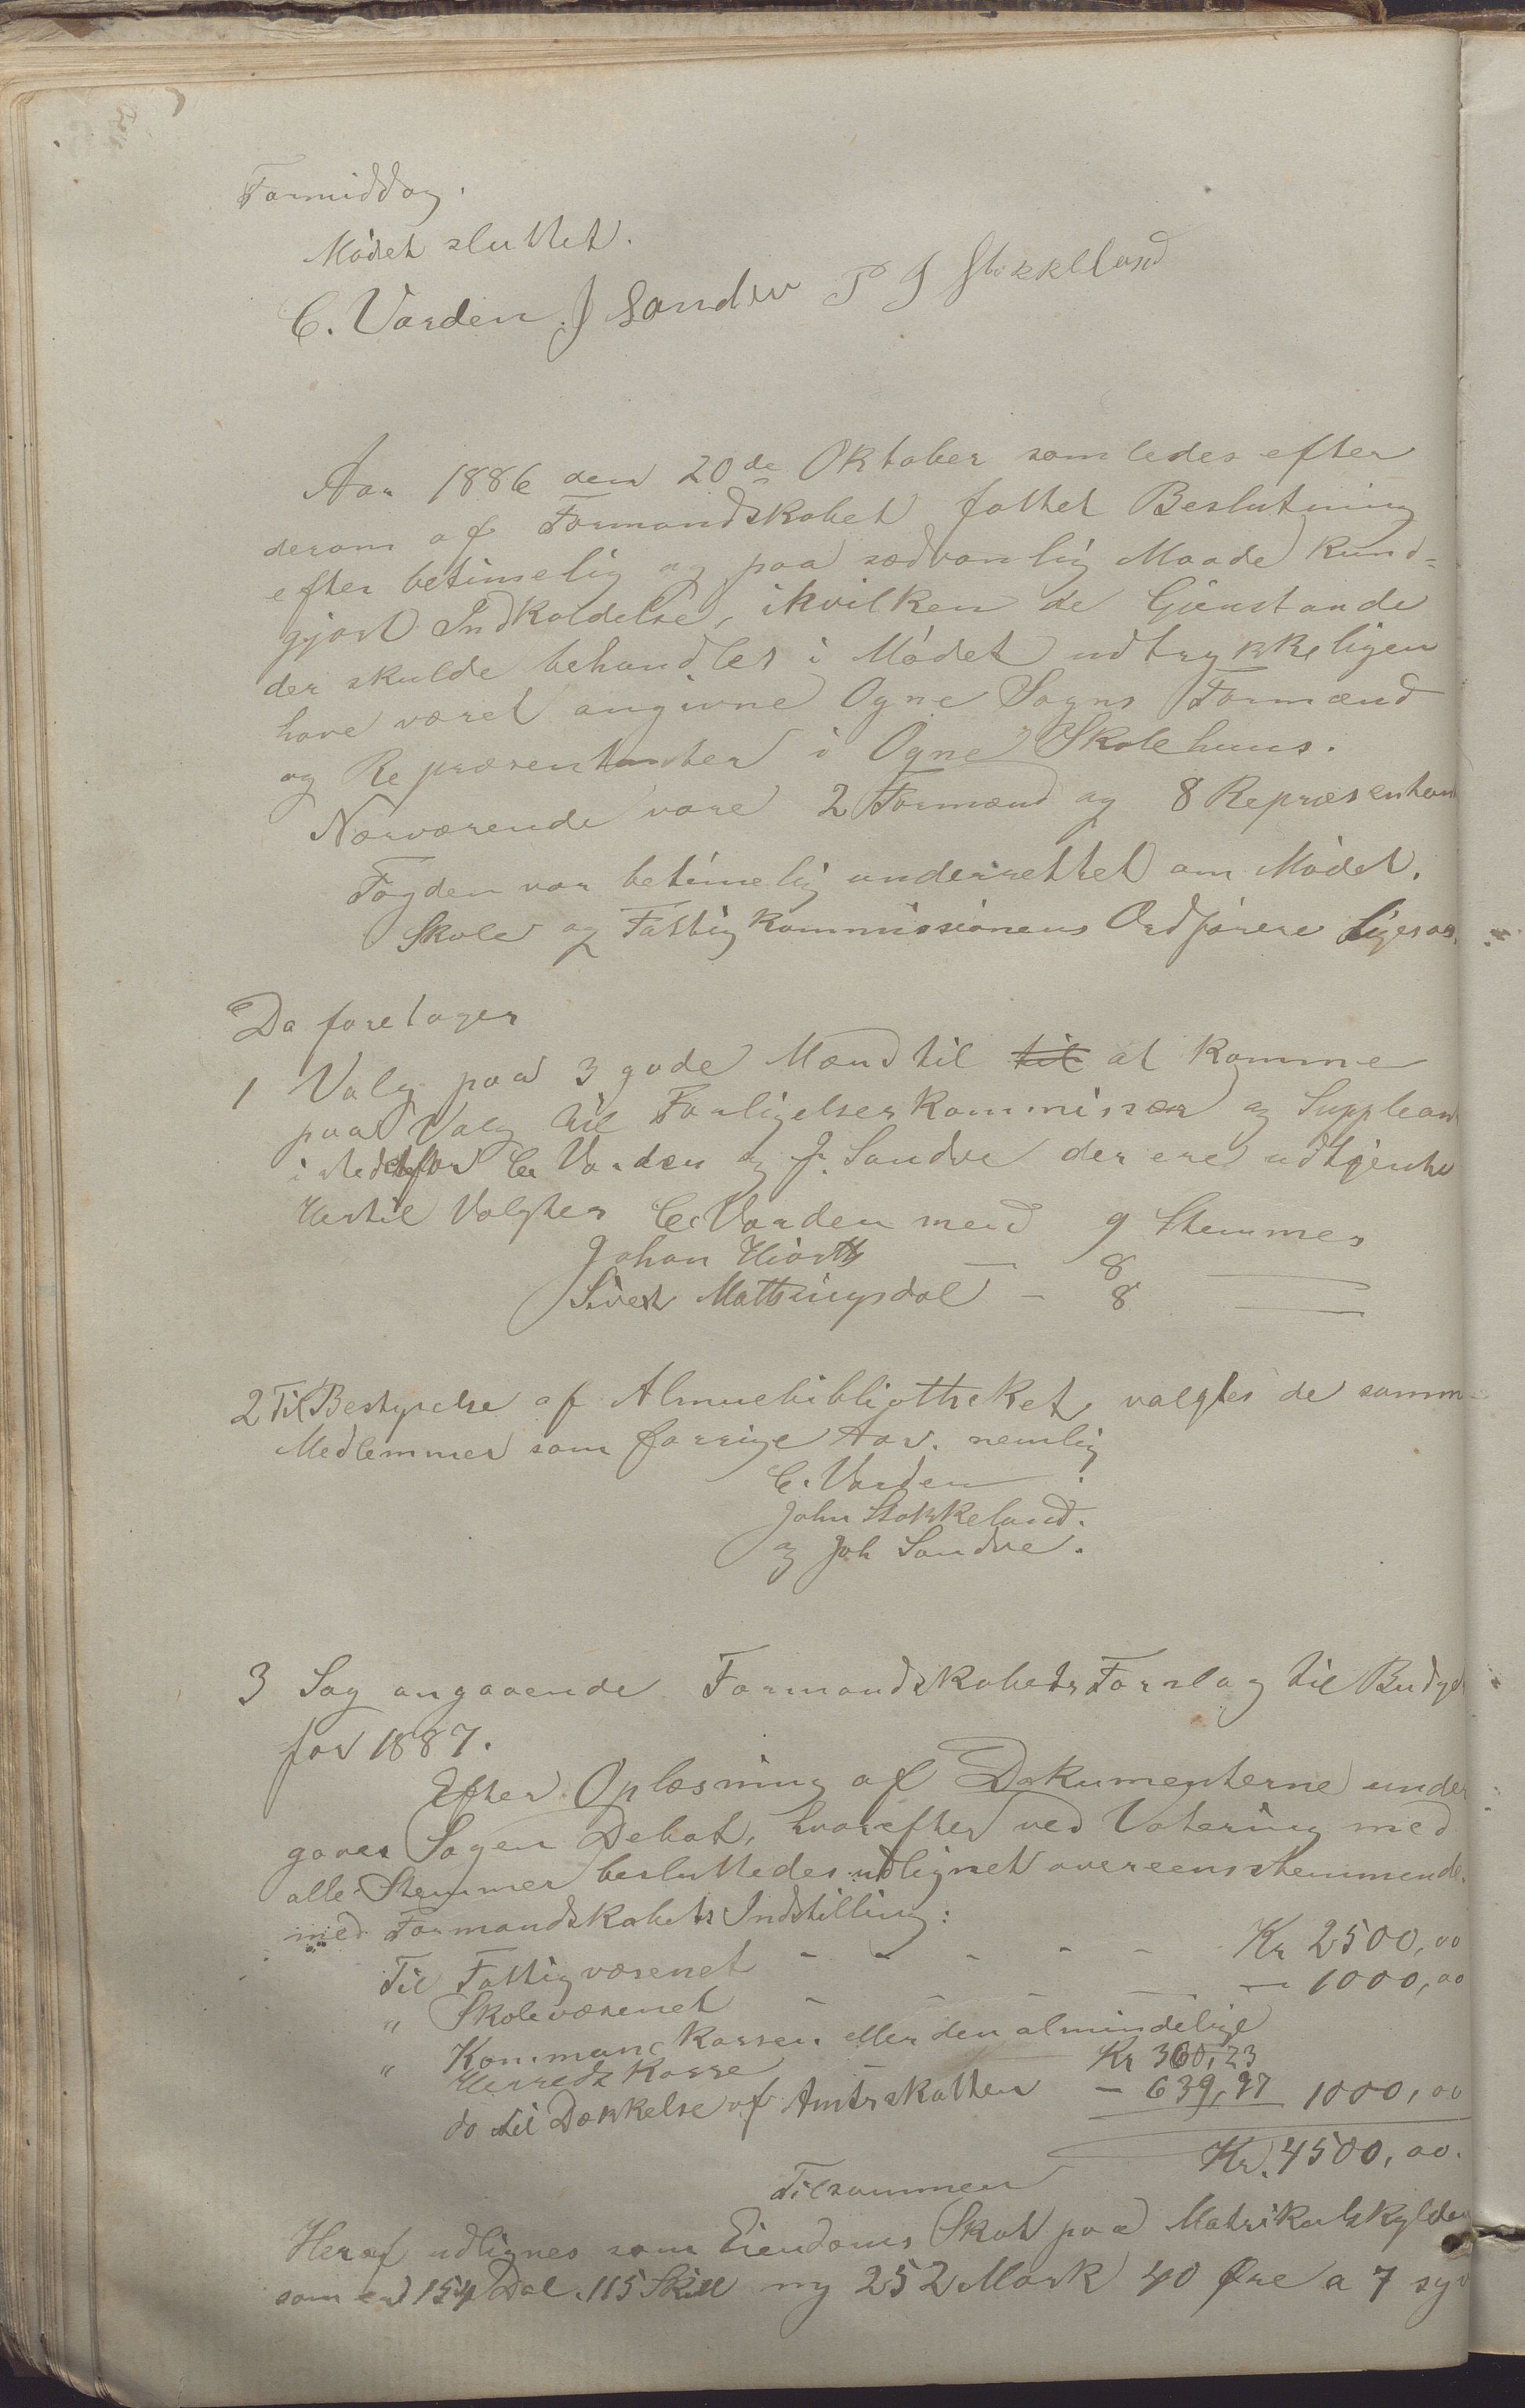 Formiddag.
Mødet sluttet.
C. Varden J Sandve P J Stokkeland
Aar 1886 den 20de Oktober samledes efter
derom af Formandskabet fattet Beslutning
efter betimelig og paa sædvanlig Maade kund-
gjort Indkaldelse, ihvilken de Gjenstande
der skulde behandles i Mødet udtrykkeligen
have været angivne Ogne Sogns Formænd
og Repræsentanter i Ogne Skolehuus.
Nærværende vare 2 Formænd og 8 Repræsentan
Fogden var betimelig underrettet om Mødet.
Skole og Fattigkommissionens Ordførere ligesaa.
Da foretoges
1 Valg paa 3 gode Mænd til til at komme
paa Valg til Forligelseskommissær og Supplean
i Stedetfor C. Varden og J. Sandve der ere udtjente
Hertil Valgtes C. Varden med 9 Stemmer
Johan Hiorth — 8 —
Sivert Mattingsdal — 8 —
2 Til Bestyrelse af Almuebibliotheket valgtes de samm-
Medlemmer som forrige Aar. nemlig
C. Varden
John Stokkeland.
og Joh Sandve.
3 Sag angaaende Formandskabets Forslag til Budget
for 1887.
Efter Oplæsning af Dokumenterne under
gaves Sagen Debat, hvorefter ved Votering med
alle Stemmer besluttedes udlignet overeensstemmende
med Formandskabets Indstilling:
Til Fattigvæsenet - - - - - Kr 2500,00
" Skolevæsenet - - - - — 1000,00
" Kommunekassen eller den almindelige
Herreds Kasse Kr 360,23
do til Dækkelse af Amtsskatten — 639,97 1000,00
Tilsammen Kr. 4500,00.
Heraf udlignes som Eiendoms Skat paa Matrikulskylden
som er 154 Dal. 115 Skill ny 252 Mark 40 Øre a 7 syv